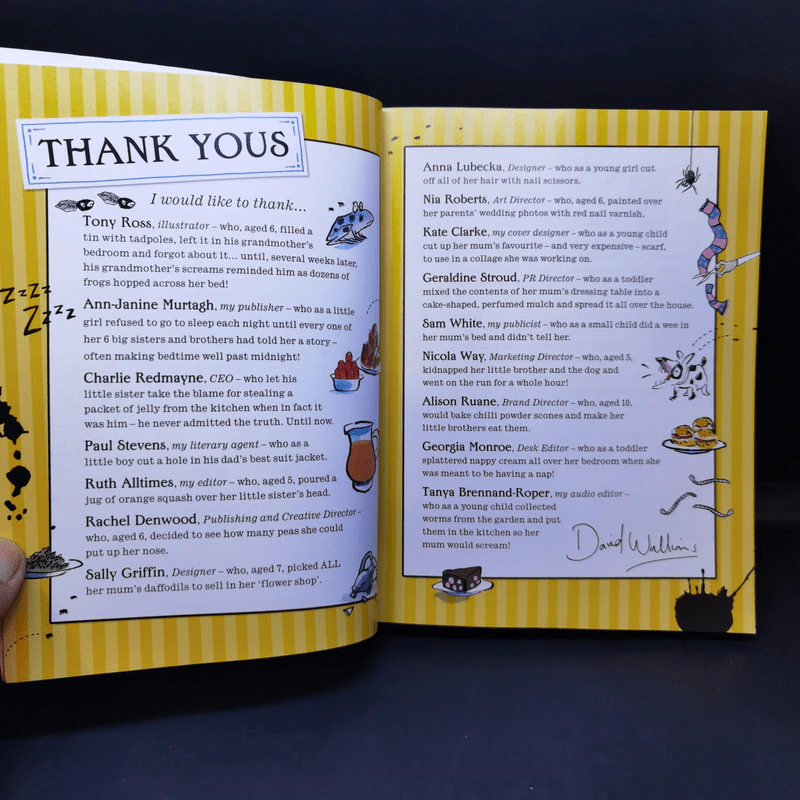 THANK YOUS
I would like to thank...
Tony Ross, illustrator – who, aged 6, filled a
tin with tadpoles, left it in his grandmother's
bedroom and forgot about it... until, several weeks later,
his grandmother's screams reminded him as dozens of
frogs hopped across her bed!
ZZZZ
ZZZZ
Ann-Janine Murtagh, my publisher – who as a little
girl refused to go to sleep each night until every one of
her 6 big sisters and brothers had told her a story –
often making bedtime well past midnight!
Charlie Redmayne, CEO – who let his
little sister take the blame for stealing a
packet of jelly from the kitchen when in fact it
was him – he never admitted the truth. Until now.
Paul Stevens, my literary agent – who as a
little boy cut a hole in his dad's best suit jacket.
Ruth Alltimes, my editor – who, aged 5, poured a
jug of orange squash over her little sister's head.
Rachel Denwood, Publishing and Creative Director –
who, aged 6, decided to see how many peas she could
put up her nose.
Sally Griffin, Designer – who, aged 7, picked ALL
her mum's daffodils to sell in her 'flower shop'.
Anna Lubecka, Designer – who as a young girl cut
off all of her hair with nail scissors.
Nia Roberts, Art Director – who, aged 6, painted over
her parents' wedding photos with red nail varnish.
Kate Clarke, my cover designer – who as a young child
cut up her mum's favourite – and very expensive – scarf,
to use in a collage she was working on.
Geraldine Stroud, PR Director – who as a toddler
mixed the contents of her mum's dressing table into a
cake-shaped, perfumed mulch and spread it all over the house.
Sam White, my publicist – who as a small child did a wee in
her mum's bed and didn't tell her.
Nicola Way, Marketing Director – who, aged 5,
kidnapped her little brother and the dog and
went on the run for a whole hour!
Alison Ruane, Brand Director – who, aged 10,
would bake chilli powder scones and make her
little brothers eat them.
Georgia Monroe, Desk Editor – who as a toddler
splattered nappy cream all over her bedroom when she
was meant to be having a nap!
Tanya Brennand-Roper, my audio editor –
who as a young child collected
worms from the garden and put
them in the kitchen so her
mum would scream!
David Walliams